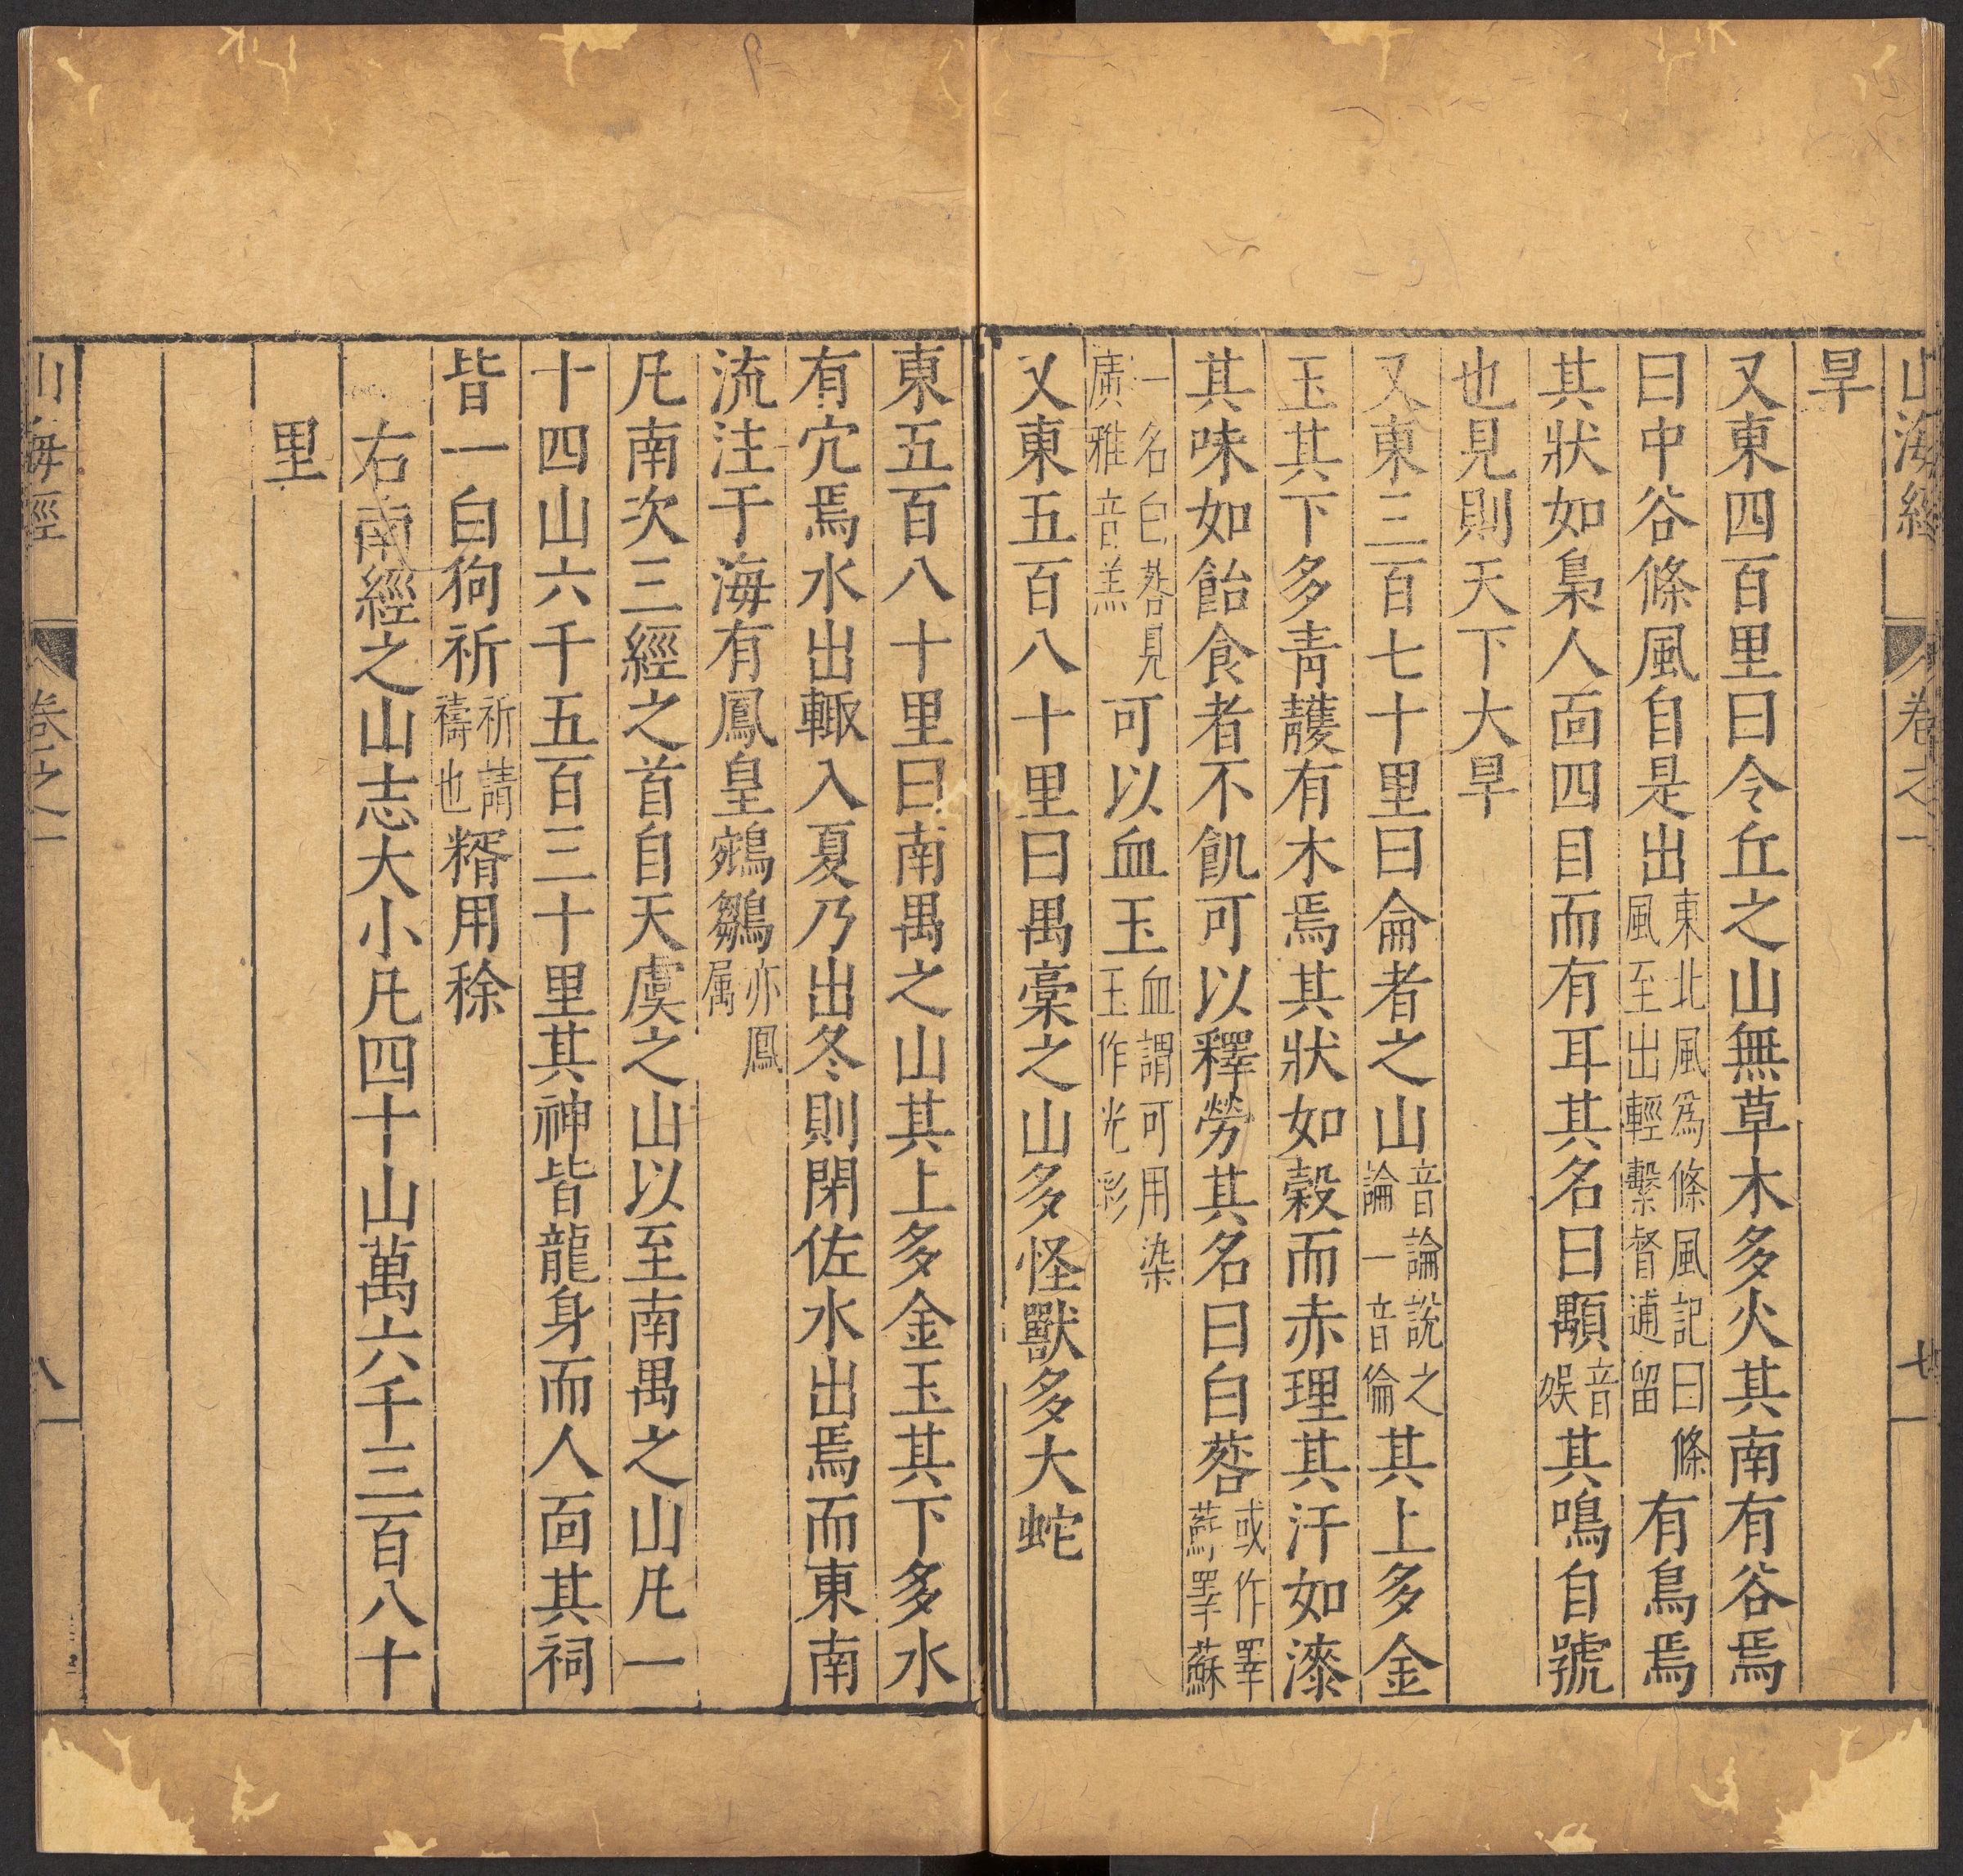 山海經 卷之一 七
旱
又東四百里曰令丘之山無草木多火其南有谷焉
曰中谷條風自是出東北風爲條風記曰條風至出輕繫督逋留有鳥焉
其狀如梟人面四目而有耳其名曰顒音娛其鳴自號
也見則天下大旱
又東三百七十里曰侖者之山音論說之論一音倫其上多金
玉其下多青䨼有木焉其狀如榖而赤理其汗如漆
其味如飴食者不飢可以釋勞其名曰白䓘或作睪蘇睪蘇
一名白䓘見廣雅音羔可以血玉血謂可用染玉作光彩
又東五百八十里曰禺稾之山多怪獸多大蛇
東五百八十里曰南禺之山其上多金玉其下多水
有穴焉水出輙入夏乃出冬則閉佐水出焉而東南
流注于海有鳳皇鵷鶵亦鳳属
凡南次三經之首自天虞之山以至南禺之山凡一
十四山六千五百三十里其神皆龍身而人面其祠
皆一白狗祈祈請禱也糈用稌
右南經之山志大小凡四十山萬六千三百八十
里
山海經 卷之一 八